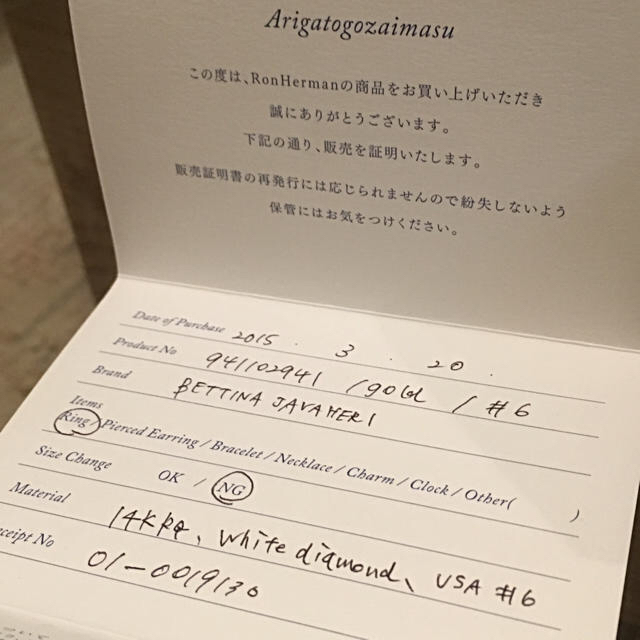 Arigatogozaimasu
この度は、RonHermanの商品をお買い上げいただき
誠にありがとうございます。
下記の通り、販売を証明いたします。
販売証明書の再発行には応じられませんので紛失しないよう
保管にはお気をつけください。
Date of Purchase 2015 . 3 . 20 .
Product No 941102941 / gold / #6
Brand BETTINA JAVAHERI
Items
Ring / Pierced Earring / Bracelet / Necklace / Charm / Clock / Other( )
Size Change OK / NG
Material 14K、white diamond、USA #6
ceipt No 01-0019130